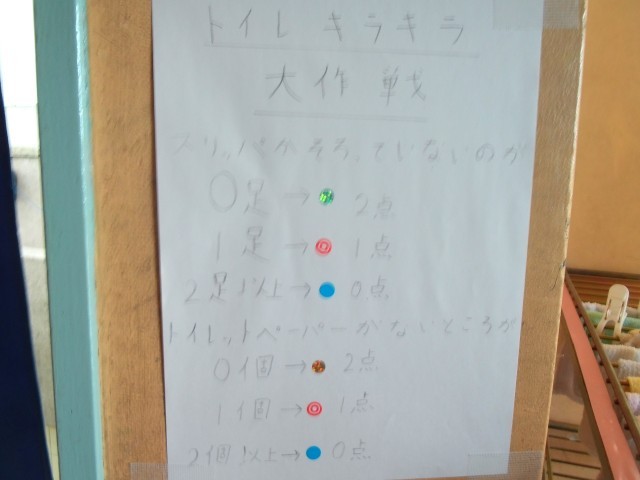 トイレ キラキラ
大作戦
スリッパがそろっていないのが
0足→ 2点
1足→ 1点
2足以上→ 0点
トイレットペーパーがないところが
0個→ 2点
1個→ 1点
2個以上→ 0点